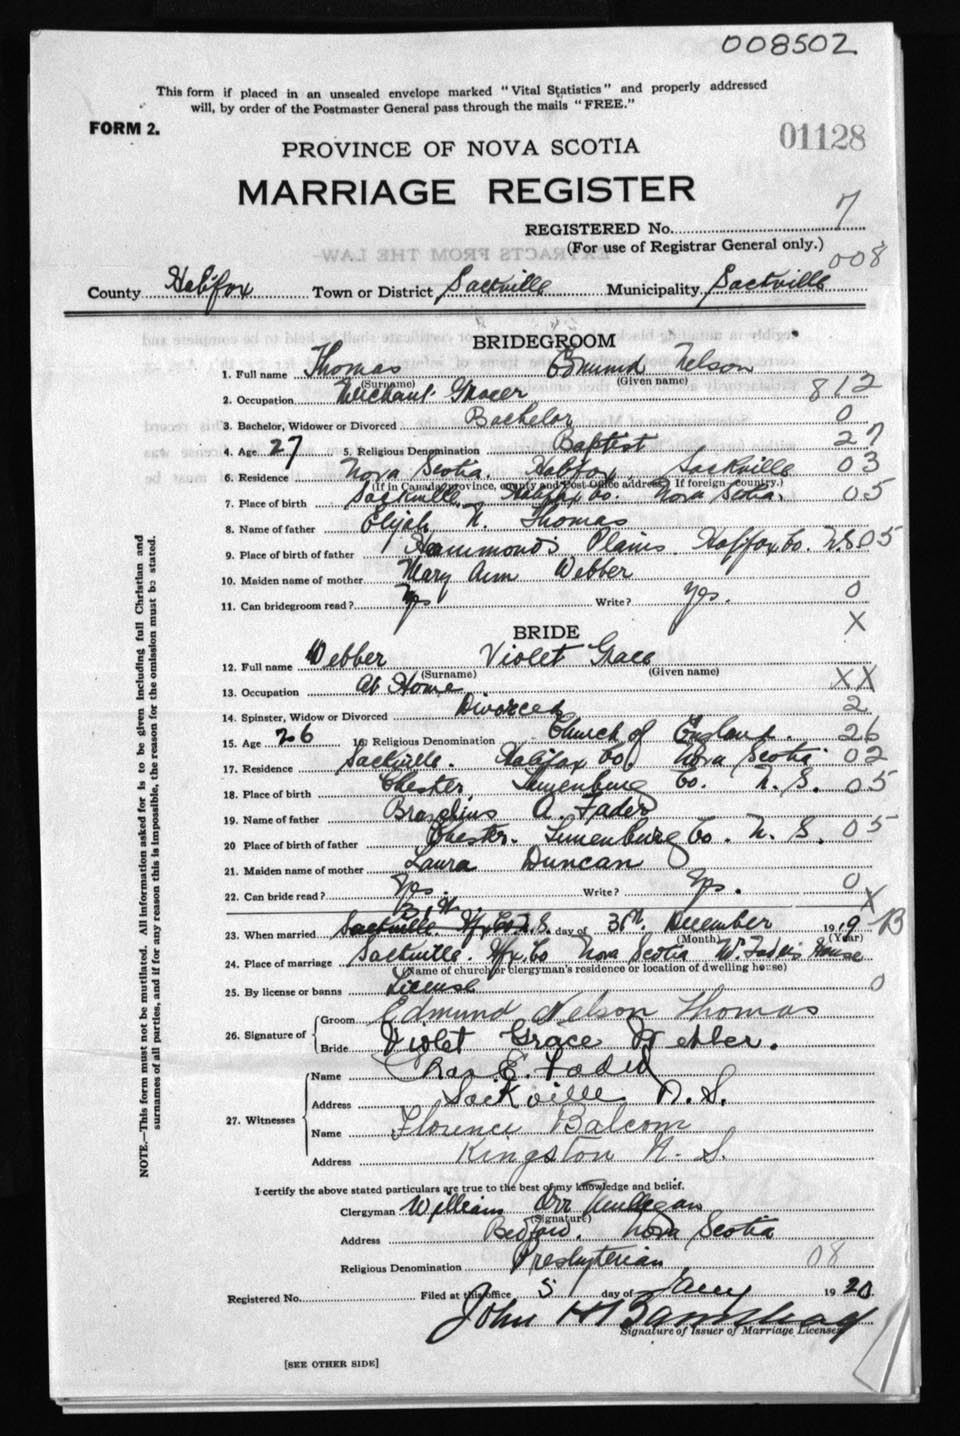 008502
This form if placed in an unsealed envelope marked "Vital Statistics" and properly addressed
will, by order of the Postmaster General pass through the mails "FREE."
FORM 2.
01128
PROVINCE OF NOVA SCOTIA
MARRIAGE REGISTER
REGISTERED No. 7
(For use of Registrar General only.)
008
County Halifax Town or District Sackville Municipality Sackville
BRIDEGROOM
1. Full name Thomas Edmund Nelson
(Surname) (Given name)
2. Occupation Merchant Grocer 812
3. Bachelor, Widower or Divorced Bachelor 0
4. Age 27 5. Religious Denomination Baptist 27
6. Residence Nova Scotia. Halifax Sackville 03
(If in Canada province, county and Post Office address. If foreign country.)
7. Place of birth Sackville, Halifax Co. Nova Scotia. 05
8. Name of father Elijah N. Thomas
9. Place of birth of father Hammond's Plains. Halifax Co. N.S 05
10. Maiden name of mother Mary Ann Webber
11. Can bridegroom read? Yes Write? Yes. 0
X
BRIDE
12. Full name Webber Violet Grace
(Surname) (Given name)
13. Occupation At Home XX
14. Spinster, Widow or Divorced Divorced 2
15. Age 26 16. Religious Denomination Church of England. 26
17. Residence Sackville. Halifax Co. Nova Scotia 02
18. Place of birth Chester, Lunenburg Co. N. S. 05
19. Name of father A. Fader
20 Place of birth of father Chester. Lunenburg Co. N. S. 05
21. Maiden name of mother Laura Duncan
22. Can bride read? Yes. Write? Yes. 0
X
23. When married Sackville. Hfx Co N.S. day of 31st December 1919 13
(Month) (Year)
24. Place of marriage Sackville. Hfx. Co Nova Scotia W. Fader's House
(Name of church or clergyman's residence or location of dwelling house)
25. By license or banns License 0
26. Signature of Groom Edmund Nelson Thomas
Bride Violet Grace Webber.
27. Witnesses Name Chas. E. Fader
Address Sackville N. S.
Name Florence Balcom
Address Kingston N. S.
I certify the above stated particulars are true to the best of my knowledge and belief.
Clergyman William Orr Mulligan
(Signature)
Address Bedford, Nova Scotia
Religious Denomination Presbyterian 08
Registered No. Filed at this office 5 day of Jany 1920.
John H
Signature of Issuer of Marriage Licenses
[SEE OTHER SIDE]
NOTE.—This form must not be mutilated. All information asked for is to be given including full Christian and
surnames of all parties, and if for any reason this is impossible, the reason for the omission must be stated.